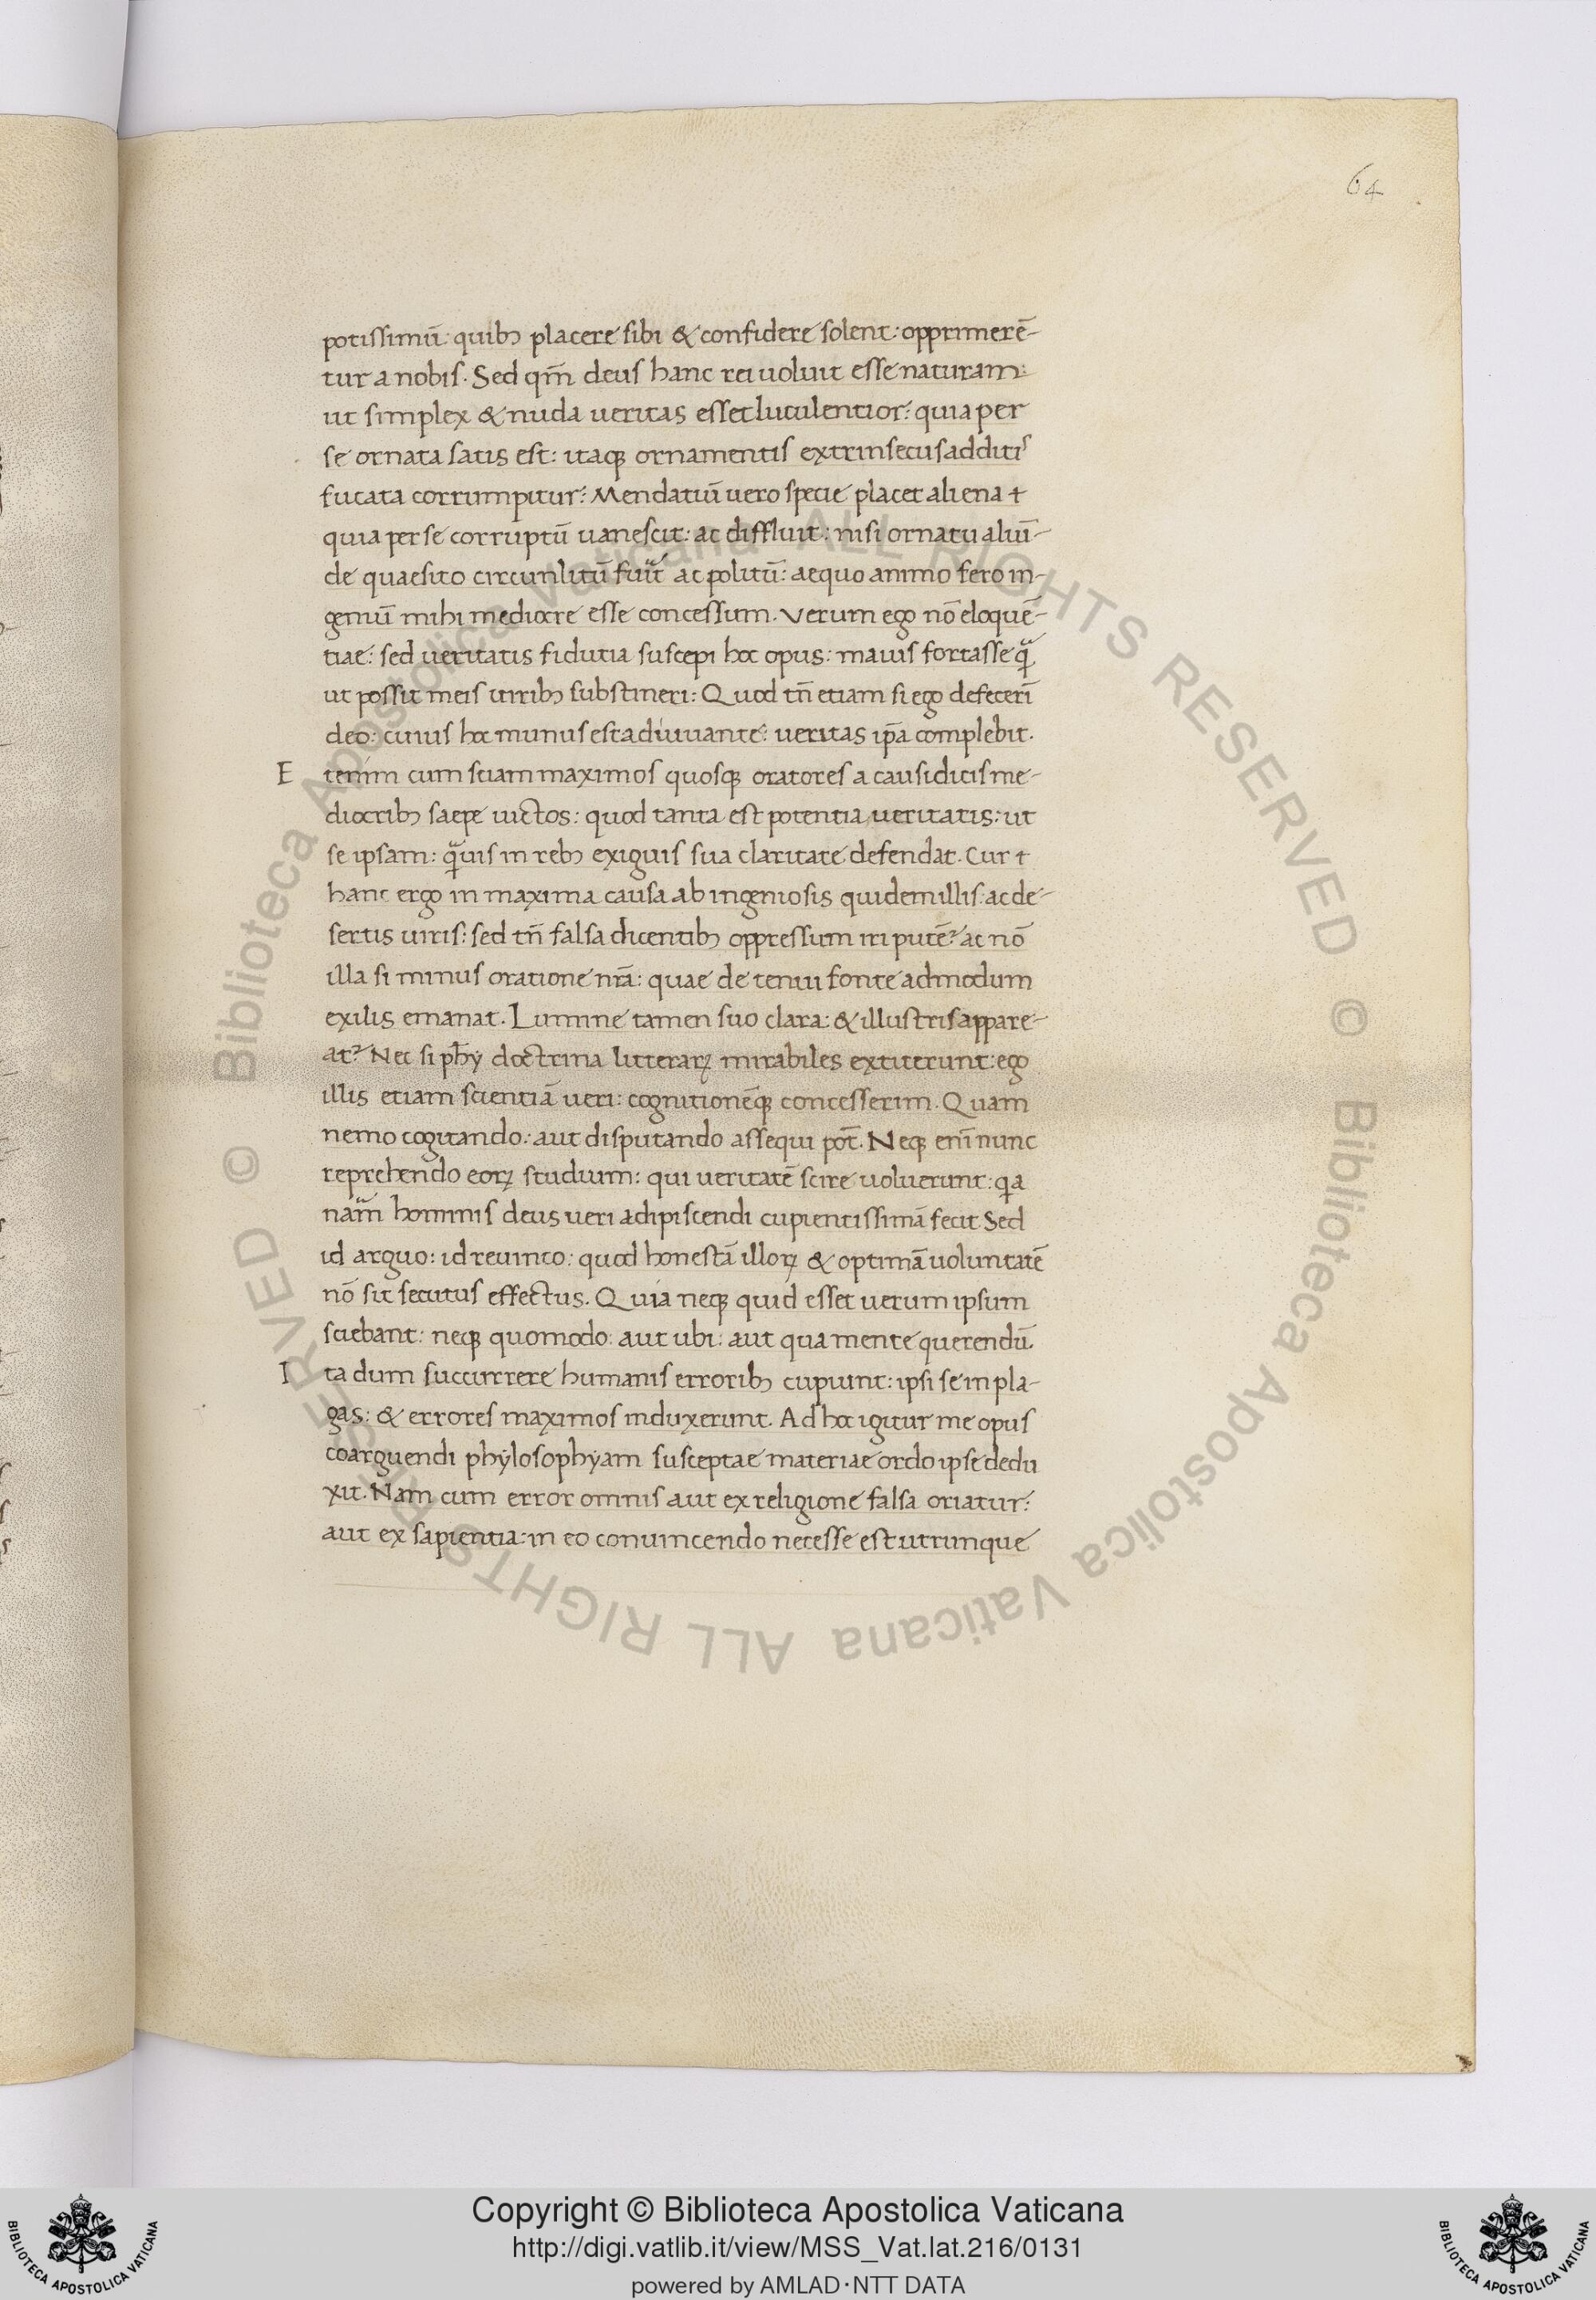 64
potissimū: quibꝫ placere sibi & confidere solent: opprimerē-
tur a nobis. Sed qm̄ deus hanc rei uoluit esse naturam:
ut simplex & nuda ueritas esset luculentior: quia per
se ornata satis est: itaqꝫ ornamentis extrinsecus additis
fucata corrumpitur: Mendatiū uero specie placet aliena
quia per se corruptū uanescit: ac diffluit: nisi ornatu aliū-
de quaesito circunlitū fuit ac politū: aequo animo fero in-
geniū mihi mediocre esse concessum. Verum ego nō eloquē-
tiae: sed ueritatis fidutia suscepi hoc opus: maius fortasse qᷓ
ut possit meis uiribꝫ substineri: Quod tn̄ etiam si ego defecerī
deo: cuius hoc munus est adiuuante: ueritas ip̄a complebit.
E tenim cum sciam maximos quosqꝫ oratores a causidicis me-
diocribꝫ saepe uictos: quod tanta est potentia ueritatis: ut
se ipsam: qᷓuis in rebꝫ exiguis sua claritate defendat. Cur
hanc ergo in maxima causa ab ingeniosis quidem illis: ac de-
sertis uiris: sed tn̄ falsa dicentibꝫ oppressum iri putē? ac nō
illa si minus oratione nr̄a: quae de tenui fonte admodum
exilis emanat. Lumine tamen suo clara: & illustris appare-
at? Nec si phy̅ doctrina litterarꝝ mirabiles extiterunt: ego
illis etiam scientiā ueri: cognitionēqꝫ concesserim. Quam
nemo cogitando: aut disputando assequi pot̄. Neqꝫ enī nunc
reprehendo eorꝝ studium: qui ueritatē scire uoluerunt: qa
nam̄ hominis deus ueri adipiscendi cupientissimā fecit Sed
id arguo: id reuinco: quod honestā illorꝝ & optimā uoluntatē
nō sit secutus effectus. Quia neqꝫ quid esset uerum ipsum
sciebant: neqꝫ quomodo: aut ubi: aut qua mente querendū.
I ta dum succurrere humanis erroribꝫ cupiunt: ipsi se in pla-
gas: & errores maximos induxerunt. Ad hoc igitur me opus
coarguendi phÿlosophÿam susceptae materiae ordo ipse dedu
xit. Nam cum error omnis aut ex religione falsa oriatur:
aut ex sapientia: in eo conuincendo necesse est utrunque
© Biblioteca Apostolica Vaticana ALL RIGHTS RESERVED
© Biblioteca Apostolica Vaticana ALL RIGHTS RESERVED
Copyright © Biblioteca Apostolica Vaticana
http://digi.vatlib.it/view/MSS_Vat.lat.216/0131
powered by AMLAD·NTT DATA
BIBLIOTECA APOSTOLICA VATICANA
BIBLIOTECA APOSTOLICA VATICANA